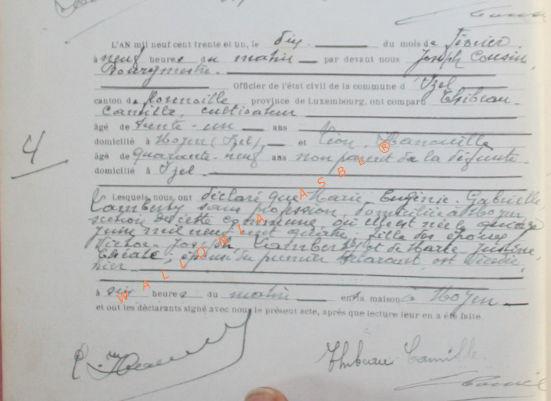 L'AN mil neuf cent trente et un, le dix du mois de Février
à neuf heures du matin par devant nous Joseph Cousin,
Bourgmestre
Officier de l'état civil de la commune d' Izel
canton de province de Luxembourg, ont comparu Thibeau
Camille, cultivateur
âgé de trente-un ans
domicilié à Moyen (Izel) et Léon
âgé de quarante-neuf ans non parent de la défunte
domicilié à Izel
Lesquels nous ont déclaré que Marie-Eugénie-Gabrielle
Lambert, sans profession, domiciliée à Moyen
section de cette commune où elle est née le quinze
juin mil neuf cent quatre, fille des époux
Victor-Joseph Lambert et de Marie
épouse du premier déclarant est décédée
hier
à six heures du matin en sa maison à Moyen
et ont les déclarants signé avec nous le présent acte, après que lecture leur en a été faite.
4
Thibeau Camille
WALLONIA ASBL ®